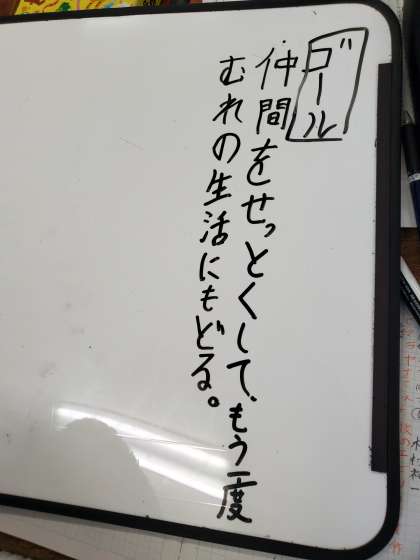 ゴール
仲間をせっとくして、もう一度
むれの生活にもどる。